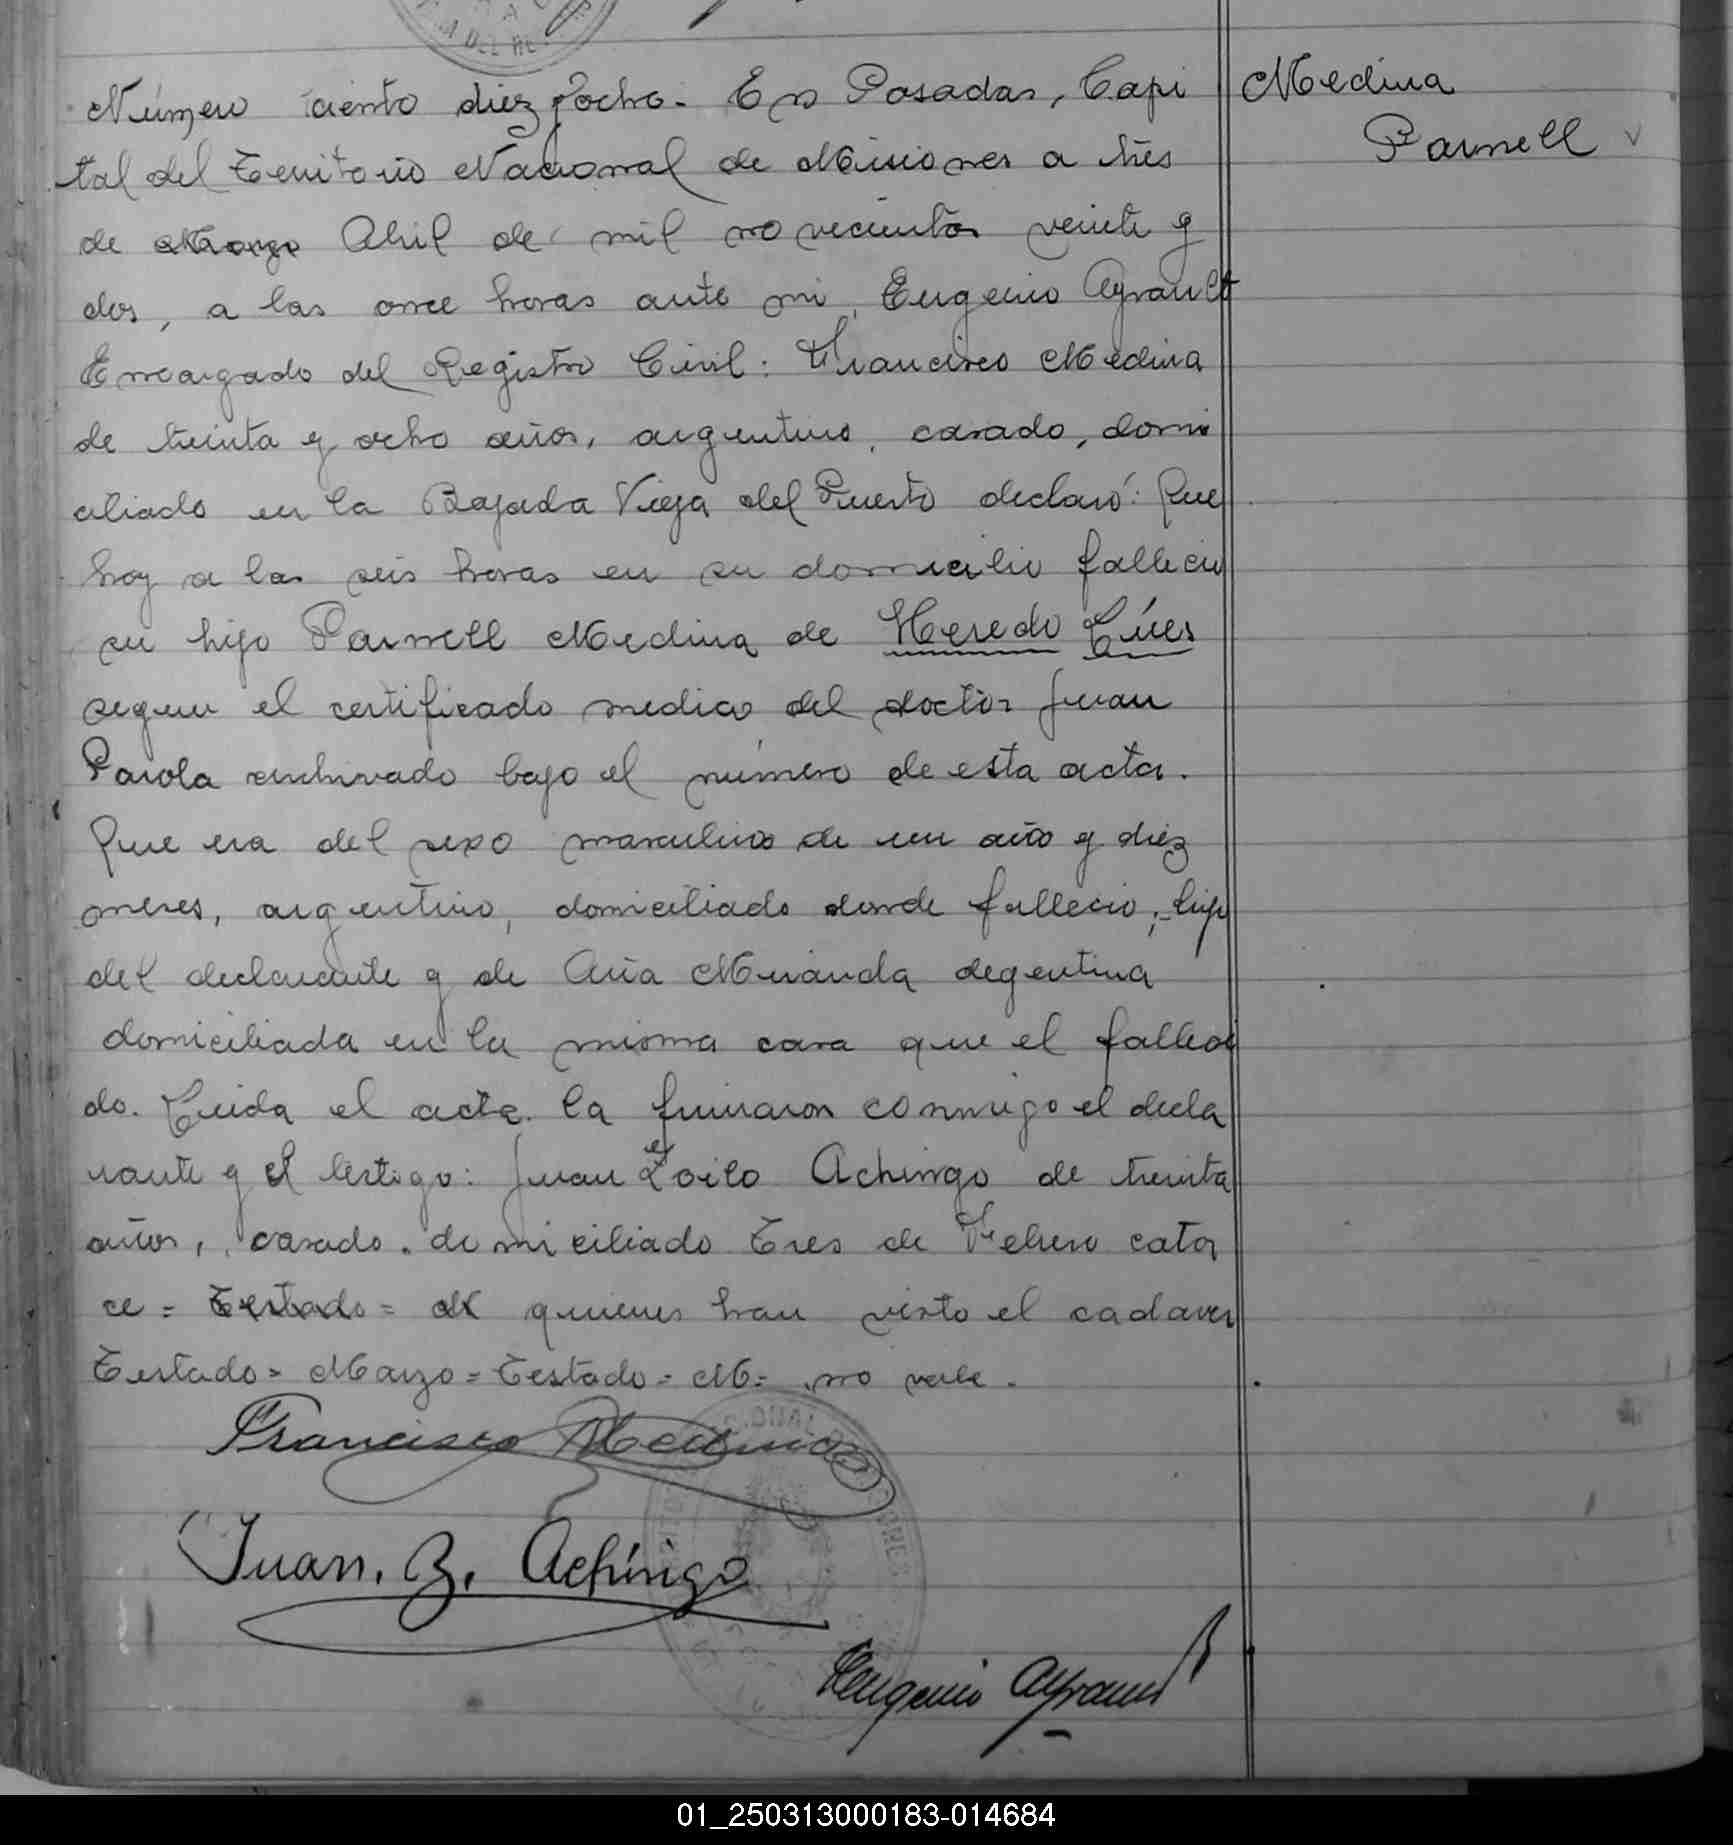 Número ciento diez y ocho. En Posadas, Capi
tal del Territorio Nacional de Misiones a tres
de Marzo Abril de mil novecientos veinte y
dos, a las once horas ante mi, Eugenio Ayrault
Encargado del Registro Civil: Francisco Medina
de treinta y ocho años, argentino, casado, domi
ciliado en la Bajada Vieja del Puerto declaró: Que
hoy a las seis horas en su domicilio fallecio
su hijo Parnell Medina de Heredo Lúes
segun el certificado medico del doctor Juan
Parola archivado bajo el número de esta acta.
Que era del sexo masculino de un año y diez
meses, argentino, domiciliado donde fallecio, hijo
del declarante y de Ana Miranda argentina
domiciliada en la misma casa que el falleci
do. Leida el acta. la firmaron conmigo el decla
rante y el testigo: Juan Zoilo Achingo de treinta
años, casado. domiciliado Tres de Febrero cator
ce = Testado = quienes han visto el cadaver
Testado = Marzo = Testado = M = no vale.
Francisco Medina
Juan. Z. Achingo
Eugenio Ayrault
Medina
Parnell
01_250313000183-014684